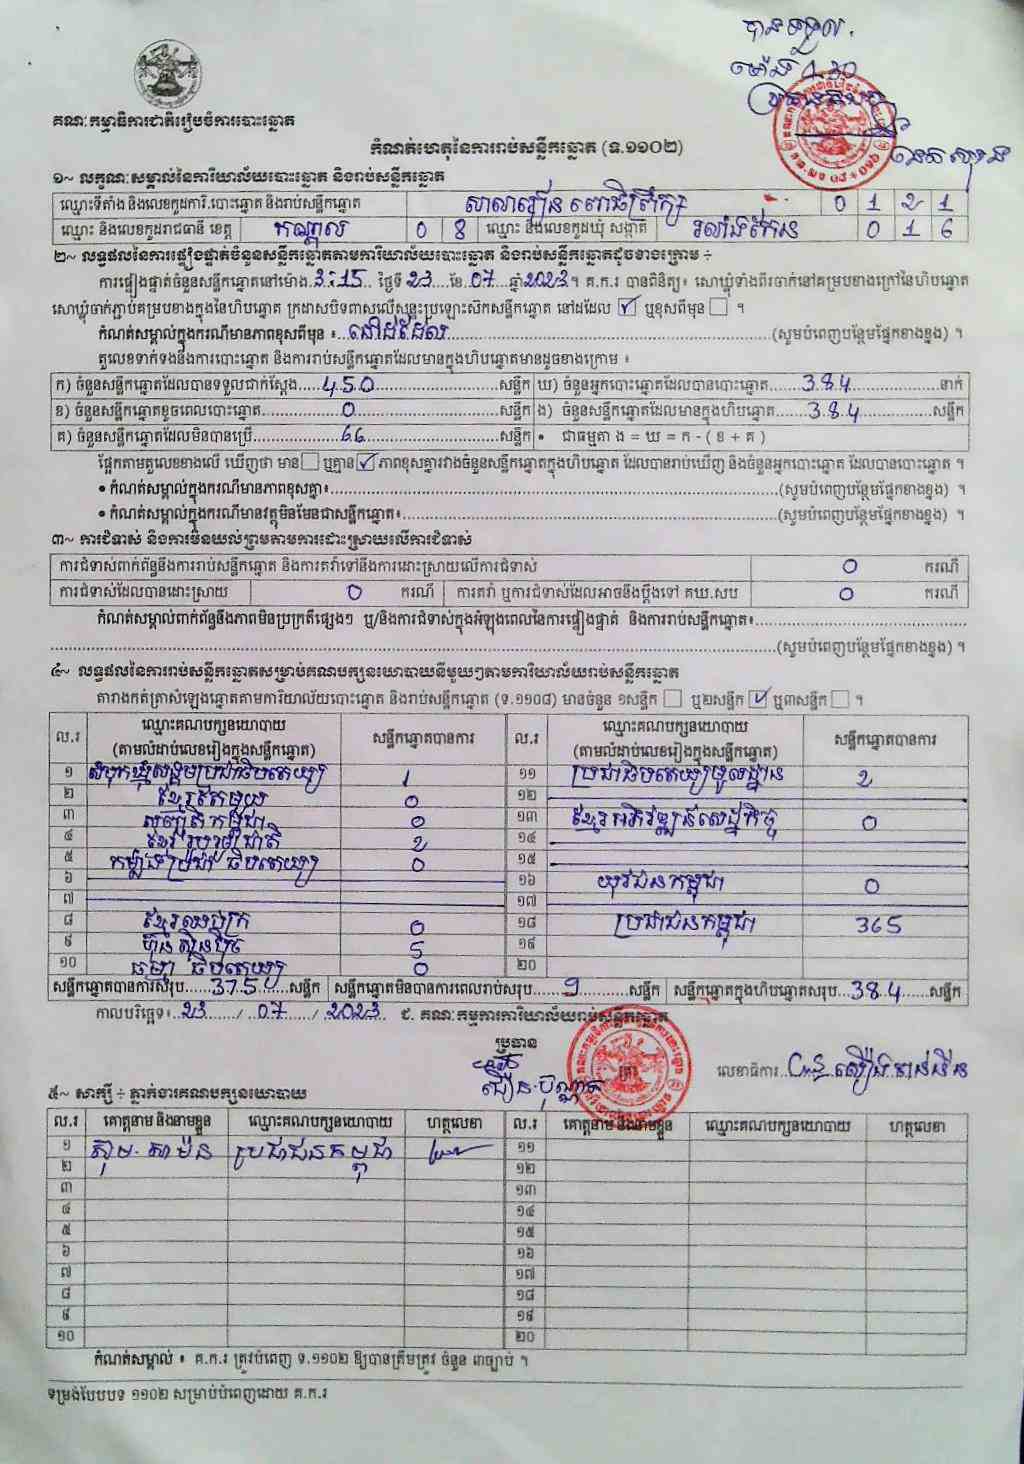 បានទទួល
ម៉ោង
គណៈកម្មាធិការជាតិរៀបចំការបោះឆ្នោត
កំណត់ហេតុនៃការរាប់សន្លឹកឆ្នោត (ទ.១១០២)
១~ លក្ខណៈសម្គាល់នៃការិយាល័យបោះឆ្នោត និងរាប់សន្លឹកឆ្នោត
ឈ្មោះទីតាំង និងលេខកូដការិ.បោះឆ្នោត និងរាប់សន្លឹកឆ្នោត សាលារៀន ពោធិព្រឹក្ស 0 1 2 1
ឈ្មោះ និងលេខកូដរាជធានី ខេត្ត កណ្តាល 0 8 ឈ្មោះ និងលេខកូដឃុំ សង្កាត់ រលាំងកែន 0 1 6
២~ លទ្ធផលនៃការផ្ទៀងផ្ទាត់ចំនួនសន្លឹកឆ្នោតតាមការិយាល័យបោះឆ្នោត និងរាប់សន្លឹកឆ្នោតដូចខាងក្រោម ÷
ការផ្ទៀងផ្ទាត់ចំនួនសន្លឹកឆ្នោតនៅម៉ោង 3:15 ថ្ងៃទី 23 ខែ 07 ឆ្នាំ 2023 ។ គ.ក.រ បានពិនិត្យ៖ សោឃ្លុំទាំងពីរចាក់នៅគម្របខាងក្រៅនៃហិបឆ្នោត
សោឃ្លុំចាក់ភ្ជាប់គម្របខាងក្នុងនៃហិបឆ្នោត ក្រដាសបិទពាសលើសន្ទះប្រឡោះស៊កសន្លឹកឆ្នោត នៅដដែល ☑ ឬខុសពីមុន ☐ ។
កំណត់សម្គាល់ក្នុងករណីមានភាពខុសពីមុន ៖ នៅដដែល (សូមបំពេញបន្ថែមផ្នែកខាងខ្នង) ។
តួលេខទាក់ទងនឹងការបោះឆ្នោត និងការរាប់សន្លឹកឆ្នោតដែលមានក្នុងហិបឆ្នោតមានដូចខាងក្រោម ៖
ក) ចំនួនសន្លឹកឆ្នោតដែលបានទទួលជាក់ស្តែង 450 សន្លឹក ឃ) ចំនួនអ្នកបោះឆ្នោតដែលបានបោះឆ្នោត 384 នាក់
ខ) ចំនួនសន្លឹកឆ្នោតខូចពេលបោះឆ្នោត 0 សន្លឹក ង) ចំនួនសន្លឹកឆ្នោតដែលមានក្នុងហិបឆ្នោត 384 សន្លឹក
គ) ចំនួនសន្លឹកឆ្នោតដែលមិនបានប្រើ 66 សន្លឹក • ជាធម្មតា ង = ឃ = ក - ( ខ + គ )
ផ្អែកតាមតួលេខខាងលើ ឃើញថា មាន ☐ ឬគ្មាន ☑ ភាពខុសគ្នារវាងចំនួនសន្លឹកឆ្នោតក្នុងហិបឆ្នោត ដែលបានរាប់ឃើញ និងចំនួនអ្នកបោះឆ្នោត ដែលបានបោះឆ្នោត ។
• កំណត់សម្គាល់ក្នុងករណីមានភាពខុសគ្នា៖ (សូមបំពេញបន្ថែមផ្នែកខាងខ្នង) ។
• កំណត់សម្គាល់ក្នុងករណីមានវត្ថុមិនមែនជាសន្លឹកឆ្នោត៖ (សូមបំពេញបន្ថែមផ្នែកខាងខ្នង) ។
៣~ ការជំទាស់ និងការមិនយល់ព្រមតាមការដោះស្រាយលើការជំទាស់
ការជំទាស់ពាក់ព័ន្ធនឹងការរាប់សន្លឹកឆ្នោត និងការតវ៉ាទៅនឹងការដោះស្រាយលើការជំទាស់ 0 ករណី
ការជំទាស់ដែលបានដោះស្រាយ 0 ករណី ការតវ៉ា ឬការជំទាស់ដែលអាចនឹងប្តឹងទៅ គឃ.សប 0 ករណី
កំណត់សម្គាល់ពាក់ព័ន្ធនឹងភាពមិនប្រក្រតីផ្សេងៗ ឬ/និងការជំទាស់ក្នុងអំឡុងពេលនៃការផ្ទៀងផ្ទាត់ និងការរាប់សន្លឹកឆ្នោត៖
(សូមបំពេញបន្ថែមផ្នែកខាងខ្នង) ។
៤~ លទ្ធផលនៃការរាប់សន្លឹកឆ្នោតសម្រាប់គណបក្សនយោបាយនីមួយៗតាមការិយាល័យរាប់សន្លឹកឆ្នោត
តារាងកត់ត្រាសំឡេងឆ្នោតតាមការិយាល័យបោះឆ្នោត និងរាប់សន្លឹកឆ្នោត (ទ.១១០៨) មានចំនួន ១សន្លឹក ☐ ឬ២សន្លឹក ☑ ឬ៣សន្លឹក ☐ ។
ល.រ ឈ្មោះគណបក្សនយោបាយ (តាមលំដាប់លេខរៀងក្នុងសន្លឹកឆ្នោត) សន្លឹកឆ្នោតបានការ ល.រ ឈ្មោះគណបក្សនយោបាយ (តាមលំដាប់លេខរៀងក្នុងសន្លឹកឆ្នោត) សន្លឹកឆ្នោតបានការ
១ សំបុកឃ្មុំសង្គមប្រជាធិបតេយ្យ 1 ១១ ប្រជាធិបតេយ្យមូលដ្ឋាន 2
២ ខ្មែរតែមួយ 0 ១២
៣ សញ្ជាតិកម្ពុជា 0 ១៣ ខ្មែរអភិវឌ្ឍន៍សេដ្ឋកិច្ច 0
៤ ខ្មែររួបរួមជាតិ 2 ១៤
៥ កម្លាំងប្រជាធិបតេយ្យ 0 ១៥
៦ ១៦ យុវជនកម្ពុជា 0
៧ ១៧
៨ ខ្មែរឈប់ក្រ 0 ១៨ ប្រជាជនកម្ពុជា 365
៩ ហ៊្វុនស៊ិនប៉ិច 5 ១៩
១០ ធម្មាធិបតេយ្យ 0 ២០
សន្លឹកឆ្នោតបានការសរុប 375 សន្លឹក សន្លឹកឆ្នោតមិនបានការពេលរាប់សរុប 9 សន្លឹក សន្លឹកឆ្នោតក្នុងហិបឆ្នោតសរុប 384 សន្លឹក
កាលបរិច្ឆេទ៖ 23 / 07 / 2023 ជ. គណៈកម្មការការិយាល័យរាប់សន្លឹកឆ្នោត
ប្រធាន
ត្រា លេខាធិការ
៥~ សាក្សី ÷ ភ្នាក់ងារគណបក្សនយោបាយ
ល.រ គោត្តនាម និងនាមខ្លួន ឈ្មោះគណបក្សនយោបាយ ហត្ថលេខា ល.រ គោត្តនាម និងនាមខ្លួន ឈ្មោះគណបក្សនយោបាយ ហត្ថលេខា
១ ស៊ុម សាម៉ន ប្រជាជនកម្ពុជា ១១
២ ១២
៣ ១៣
៤ ១៤
៥ ១៥
៦ ១៦
៧ ១៧
៨ ១៨
៩ ១៩
១០ ២០
កំណត់សម្គាល់ ៖ គ.ក.រ ត្រូវបំពេញ ទ.១១០២ ឱ្យបានត្រឹមត្រូវ ចំនួន ៣ច្បាប់ ។
ទម្រង់បែបបទ ១១០២ សម្រាប់បំពេញដោយ គ.ក.រ